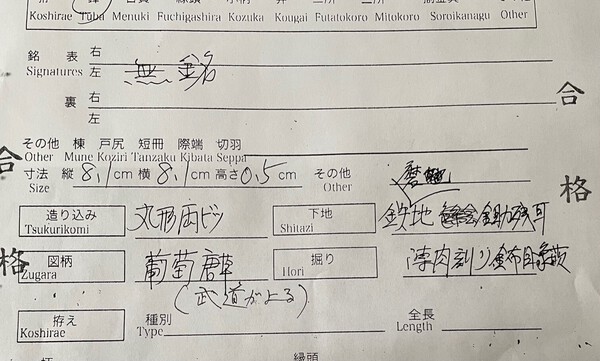 Koshirae Tuba Menuki Fuchigashira Kozuka Kougai Futatokoro Mitokoro Soroikanagu Other
銘 表 右
Signatures 左 無銘
裏 右
左
合
その他 棟 戸尻 短冊 際端 切羽
Other Mune Koziri Tanzaku Kibata Seppa
合
寸法 縦 8.1 cm 横 8.1 cm 高さ 0.5 cm その他
Size Other
格
造り込み 丸形両ヒツ 下地 鉄地
Tsukurikomi Shitazi
格
図柄 葡萄唐草 掘り 薄肉彫り 布目象嵌
Zugara Hori
(武道がよる)
拵え 種別 全長
Koshirae Type Length
縁頭